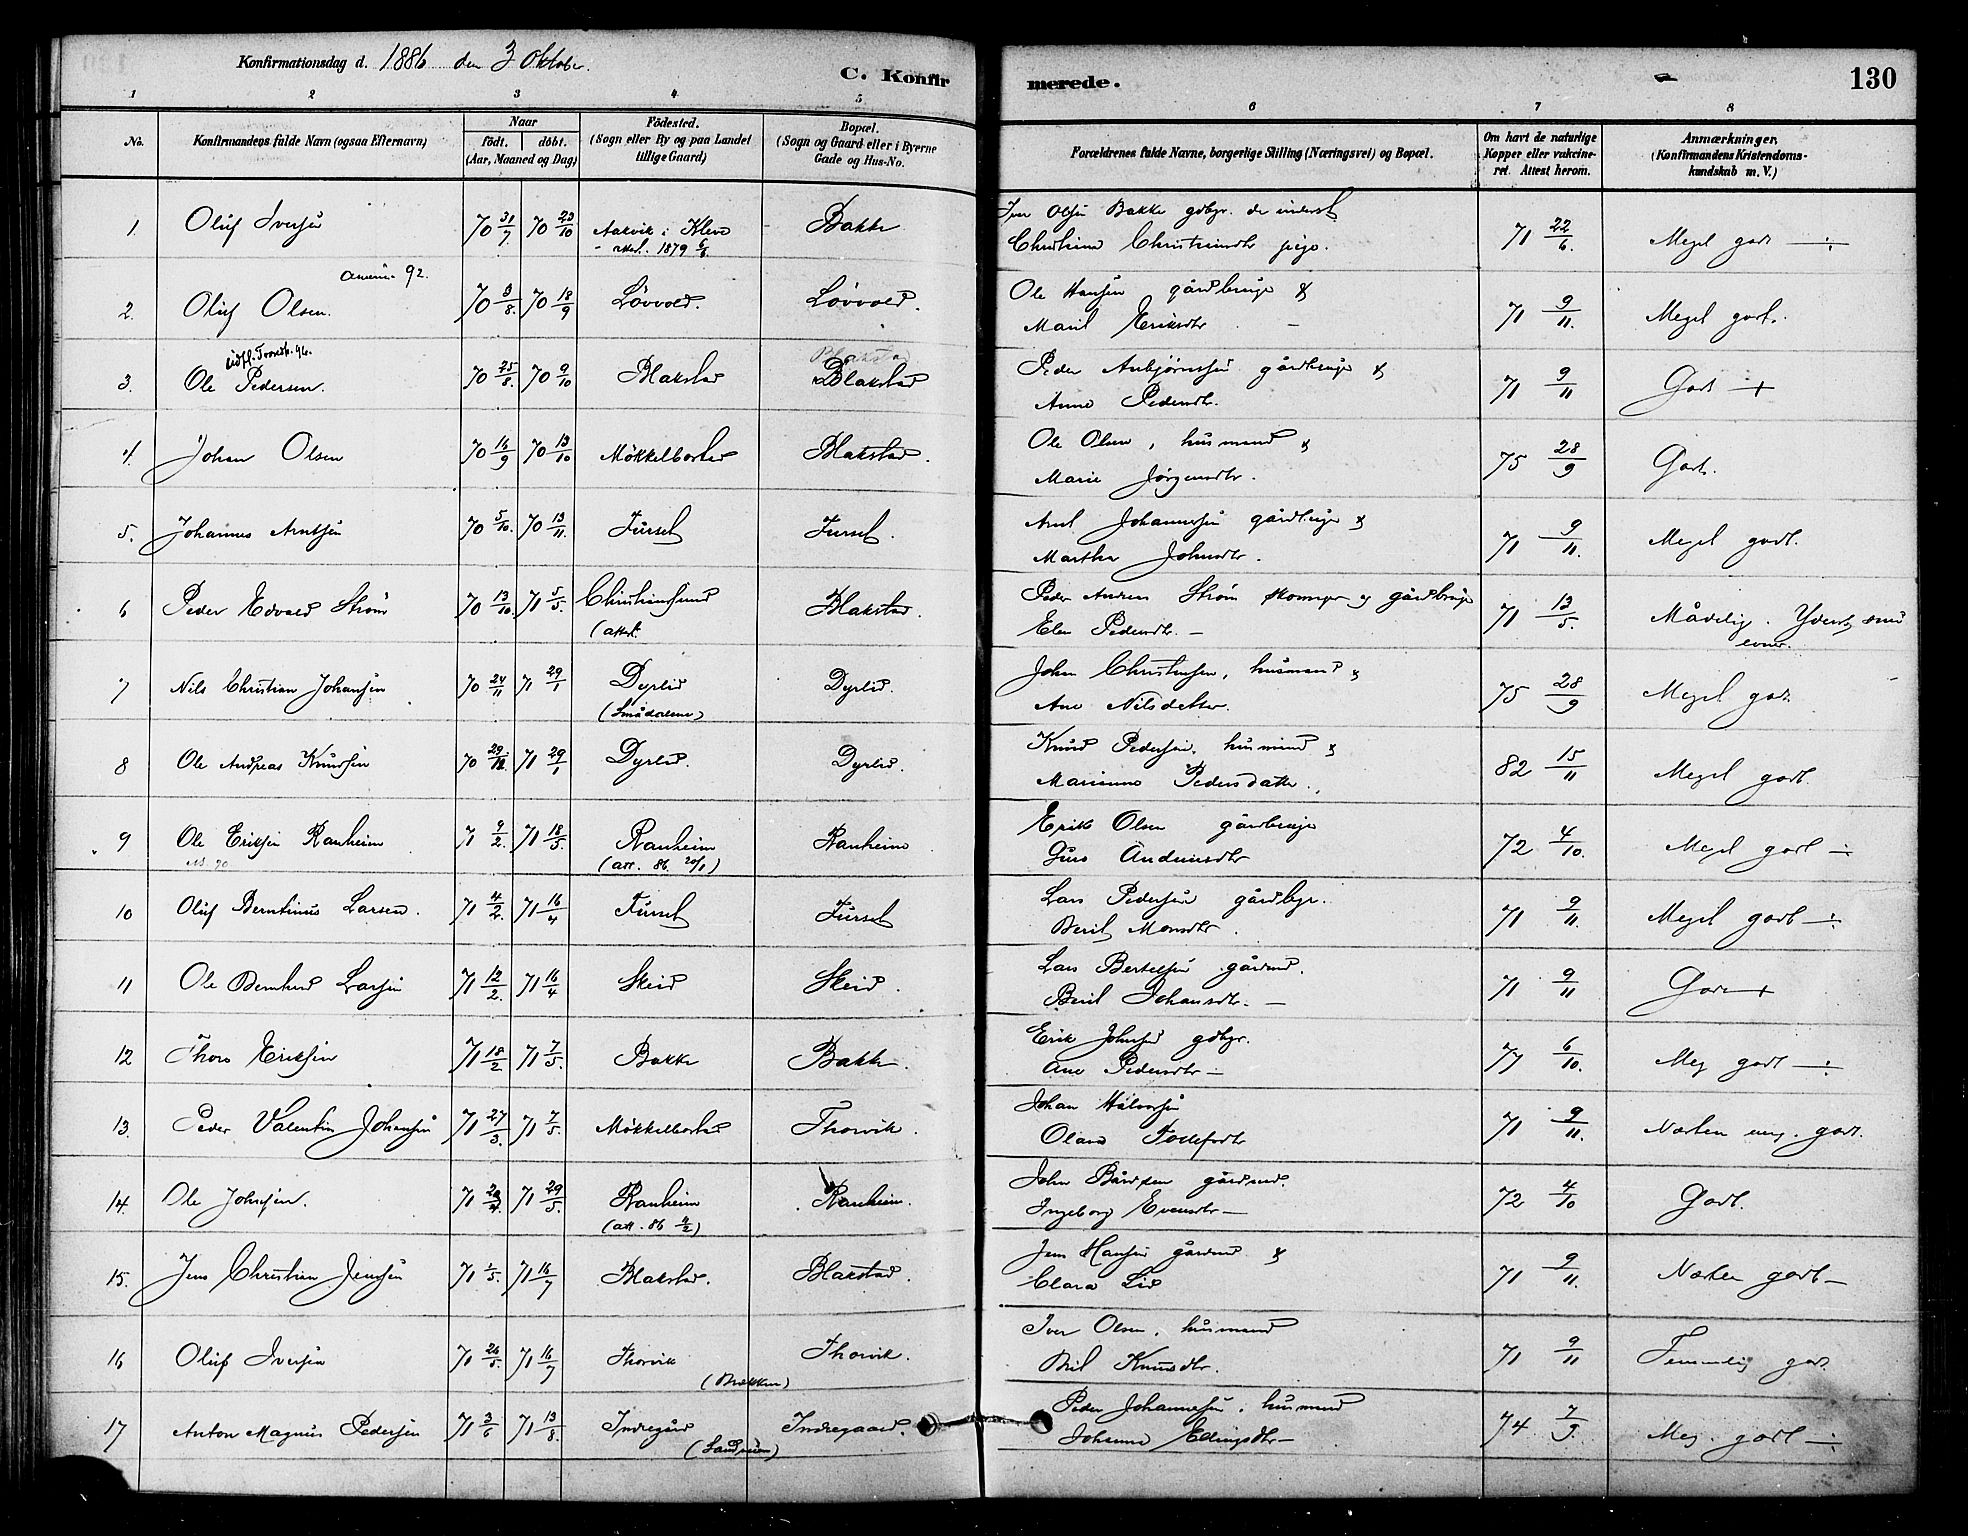 Konfirmationsdag d. 1886 den 3 Oktober.
C. Konfirmerede.
130
1 2 3 4 5 6 7 8
No.
Konfirmandens fulde Navn (ogsaa Efternavn)
Naar
födt. döbt.
(Aar, Maaned og Dag)
Födested.
(Sogn eller By og paa Landet
tillige Gaard)
Bopæl.
(Sogn og Gaard eller i Byerne
Gade og Hus-No.
Forældrenes fulde Navne, borgerlige Stilling (Næringsvei) og Bopæl.
Om havt de naturlige
Kopper eller vakcine-
ret. Attest herom.
Anmærkninger,
(Konfirmandens Kristendoms-
kundskab m. V.)
1. Oluf Iversen 70 31/7. 70 23/10 Aakvik i Bakke Iver Olsen Bakke gdbgr. 71 22/6. Meget godt
1879 Christine pige.
92.
2. Oluf Olsen. 70 3/8. 70 18/9 Løvvold. Løvvold. Ole Hansen gårdbruger & 71 9/11. Meget godt.
Marit Eriksdtr
Trondh. 96.
3. Ole Pedersen. 70 25/8. 70 9/10 Blakstad Blakstad Peder gårdbruger & 71 9/11 Godt +
Anne Pedersdtr.
4. Johan Olsen 70 16/9 70 13/10 Møkkelbostad Blakstad. Ole Olsen, husmand & 75 28/9 Godt.
Marie Jørgensdtr.
5. Johannes Arntsen 70 5/10. 70 13/11. Fursel Fursel. Arnt Johannesen gårdbruger & 71 9/11. Meget godt.
Martha Johnsdtr.
6 Peder Edvard Strøm 70 13/10. 71 5/5. Christiansund Blakstad. Peder Andreas Strøm skomager og gårdbruger 71 13/5. Mådelig. Yderst små
(attest. Elen Pedersdtr. evner.
7 Nils Christian Johansen 70 24/11 71 29/1 Dyrlid Dyrlid. John Christensen, husmand & 75 28/9 Meget godt
(Smådalene) Ane Nilsdatter.
8 Ole Andreas Knudsen 70 71 29/1 Dyrlid. Dyrlid. Knud Pedersen, husmand & 82 15/11 Meget godt
Marianne Pedersdatter.
9 Ole Eriksen Ranheim 71 9/2. 71 18/5 Ranheim Ranheim Erik Olsen gårdbruger 72 4/10. Meget godt
(att. 86 20/1) Guro Andersdtr
10 Oluf Berntinus Larsen. 71 4/2. 71 16/4 Fursel Fursel Lars Pedersen gårdbgr. 71 9/11. Meget godt
Berit Monsdtr.
11 Ole Bernhard Larsen 71 12/2. 71 16/4 Skeid Skeid. Lars Bertelsen gårdmd. 71 9/11 Godt +
Berit Johansdtr.
12 Thore Eriksen 71 18/2 71 7/5. Bakke Bakke. Erik Johnsen gdbgr. 6/10. Meg godt
Ane Pedersdtr
13. Peder Valentin Johansen 71 27/3. 71 7/5. Møkkelbostad Thorvik. Johan Halvorsen 71 9/11. Næsten meg. godt.
Olava Tollefsdtr
14. Ole Johnsen. 71 71 29/5. Ranheim Ranheim. John Bårdsen gårdmd. 72 4/10 Godt.
(att. 86 4/2) Ingeborg Evensdtr
15. Jens Christian Jensen 71 1/5. 71 16/7 Blakstad. Blakstad. Jens Hansen gårdmd & 71 9/11. Næsten godt
Clara Lid
16 Oluf Iversen 71 26/5. 71 16/7 Thorvik Thorvik. Iver Olsen, husmand 71 9/11 Temmelig godt.
(Brækken) Brit Knudsdtr.
17 Anton Magnus Pedersen 71 3/6 71 13/8. Indregård Indregaard. Peder Johannesen, husmand 74 7/9. Meg. godt
Johanna